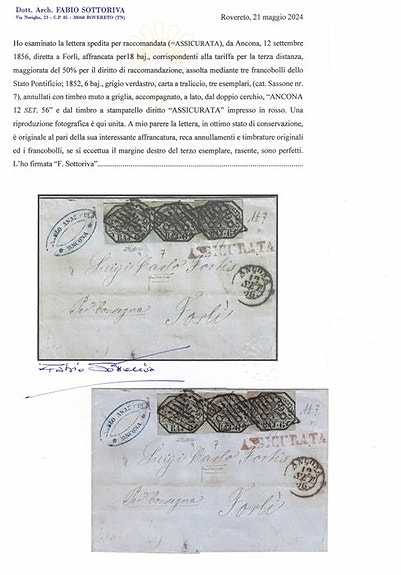 Dott. Arch. FABIO SOTTORIVA
Via Noriglio, 23 – C.P. 45 – 38068 ROVERETO (TN)
Rovereto, 21 maggio 2024
Ho esaminato la lettera spedita per raccomandata (=ASSICURATA), da Ancona, 12 settembre
1856, diretta a Forlì, affrancata per18 baj., corrispondenti alla tariffa per la terza distanza,
maggiorata del 50% per il diritto di raccomandazione, assolta mediante tre francobolli dello
Stato Pontificio; 1852, 6 baj., grigio verdastro, carta a traliccio, tre esemplari, (cat. Sassone nr.
7), annullati con timbro muto a griglia, accompagnato, a lato, dal doppio cerchio, “ANCONA
12 SET. 56” e dal timbro a stampatello diritto “ASSICURATA” impresso in rosso. Una
riproduzione fotografica è qui unita. A mio parere la lettera, in ottimo stato di conservazione,
è originale al pari della sua interessante affrancatura, reca annullamenti e timbrature originali
ed i francobolli, se si eccettua il margine destro del terzo esemplare, rasente, sono perfetti.
L’ho firmata “F. Sottoriva”
ANCONA
ASSICURATA
Luigi Carlo Fortis
ANCONA
12
SET
56
Per Consegna
Forlì
Fabio Sottoriva
ANCONA
ASSICURATA
Luigi Carlo Fortis
ANCONA
12
SET
56
Per Consegna
Forlì